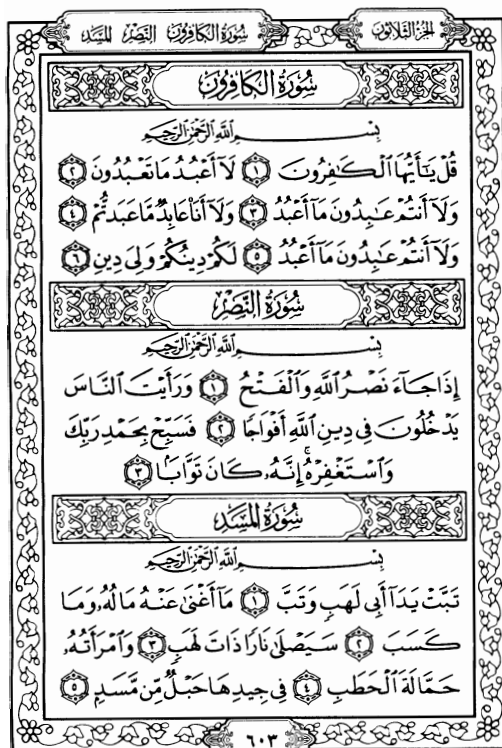 سُورَةُ الكَافِرُونَ النَّصْر المَسَد
الجُزْءُ الثَّلَاثُونَ
سُورَةُ الكَافِرُونَ
بِسْمِ ٱللَّهِ ٱلرَّحْمَٰنِ ٱلرَّحِيمِ
قُلْ يَٰٓأَيُّهَا ٱلْكَٰفِرُونَ ١ لَآ أَعْبُدُ مَا تَعْبُدُونَ ٢
وَلَآ أَنتُمْ عَٰبِدُونَ مَآ أَعْبُدُ ٣ وَلَآ أَنَا۠ عَابِدٌ مَّا عَبَدتُّمْ ٤
وَلَآ أَنتُمْ عَٰبِدُونَ مَآ أَعْبُدُ ٥ لَكُمْ دِينُكُمْ وَلِىَ دِينِ ٦
سُورَةُ النَّصْرِ
بِسْمِ ٱللَّهِ ٱلرَّحْمَٰنِ ٱلرَّحِيمِ
إِذَا جَآءَ نَصْرُ ٱللَّهِ وَٱلْفَتْحُ ١ وَرَأَيْتَ ٱلنَّاسَ
يَدْخُلُونَ فِى دِينِ ٱللَّهِ أَفْوَاجًا ٢ فَسَبِّحْ بِحَمْدِ رَبِّكَ
وَٱسْتَغْفِرْهُ ۚ إِنَّهُۥ كَانَ تَوَّابًۢا ٣
سُورَةُ المَسَدِ
بِسْمِ ٱللَّهِ ٱلرَّحْمَٰنِ ٱلرَّحِيمِ
تَبَّتْ يَدَآ أَبِى لَهَبٍ وَتَبَّ ١ مَآ أَغْنَىٰ عَنْهُ مَالُهُۥ وَمَا
كَسَبَ ٢ سَيَصْلَىٰ نَارًا ذَاتَ لَهَبٍ ٣ وَٱمْرَأَتُهُۥ
حَمَّالَةَ ٱلْحَطَبِ ٤ فِى جِيدِهَا حَبْلٌ مِّن مَّسَدٍۭ ٥
٦٠٣